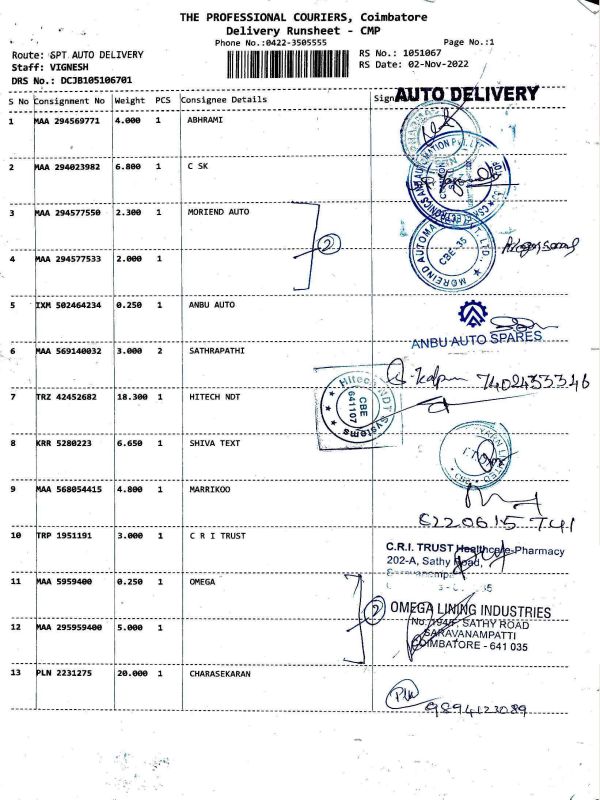 THE PROFESSIONAL COURIERS, Coimbatore
Delivery Runsheet - CMP
Phone No.:0422-3505555 Page No.:1
Route: SPT AUTO DELIVERY RS No.: 1051067
Staff: VIGNESH RS Date: 02-Nov-2022
DRS No.: DCJB105106701
AUTO DELIVERY
S No Consignment No Weight PCS Consignee Details
1 MAA 294569771 4.000 1 ABHRAMI
2 MAA 294023982 6.800 1 C SK
3 MAA 294577550 2.300 1 MORIEND AUTO
2
4 MAA 294577533 2.000 1
MOREIND AUTOMA
CBE-35
5 IXM 502464234 0.250 1 ANBU AUTO
ANBU AUTO SPARES
6 MAA 569140032 3.000 2 SATHRAPATHI
7402433346
7 TRZ 42452682 18.300 1 HITECH NDT
Hitech NDT Systems
CBE
641107
8 KRR 5280223 6.650 1 SHIVA TEXT
9 MAA 568054415 4.800 1 MARRIKOO
10 TRP 1951191 3.000 1 C R I TRUST
C.R.I. TRUST Healthcare-Pharmacy
202-A, Sathy Road,
11 MAA 5959400 0.250 1 OMEGA
2
OMEGA LINING INDUSTRIES
SATHY ROAD
SARAVANAMPATTI
COIMBATORE - 641 035
12 MAA 295959400 5.000 1
13 PLN 2231275 20.000 1 CHARASEKARAN
9894123089